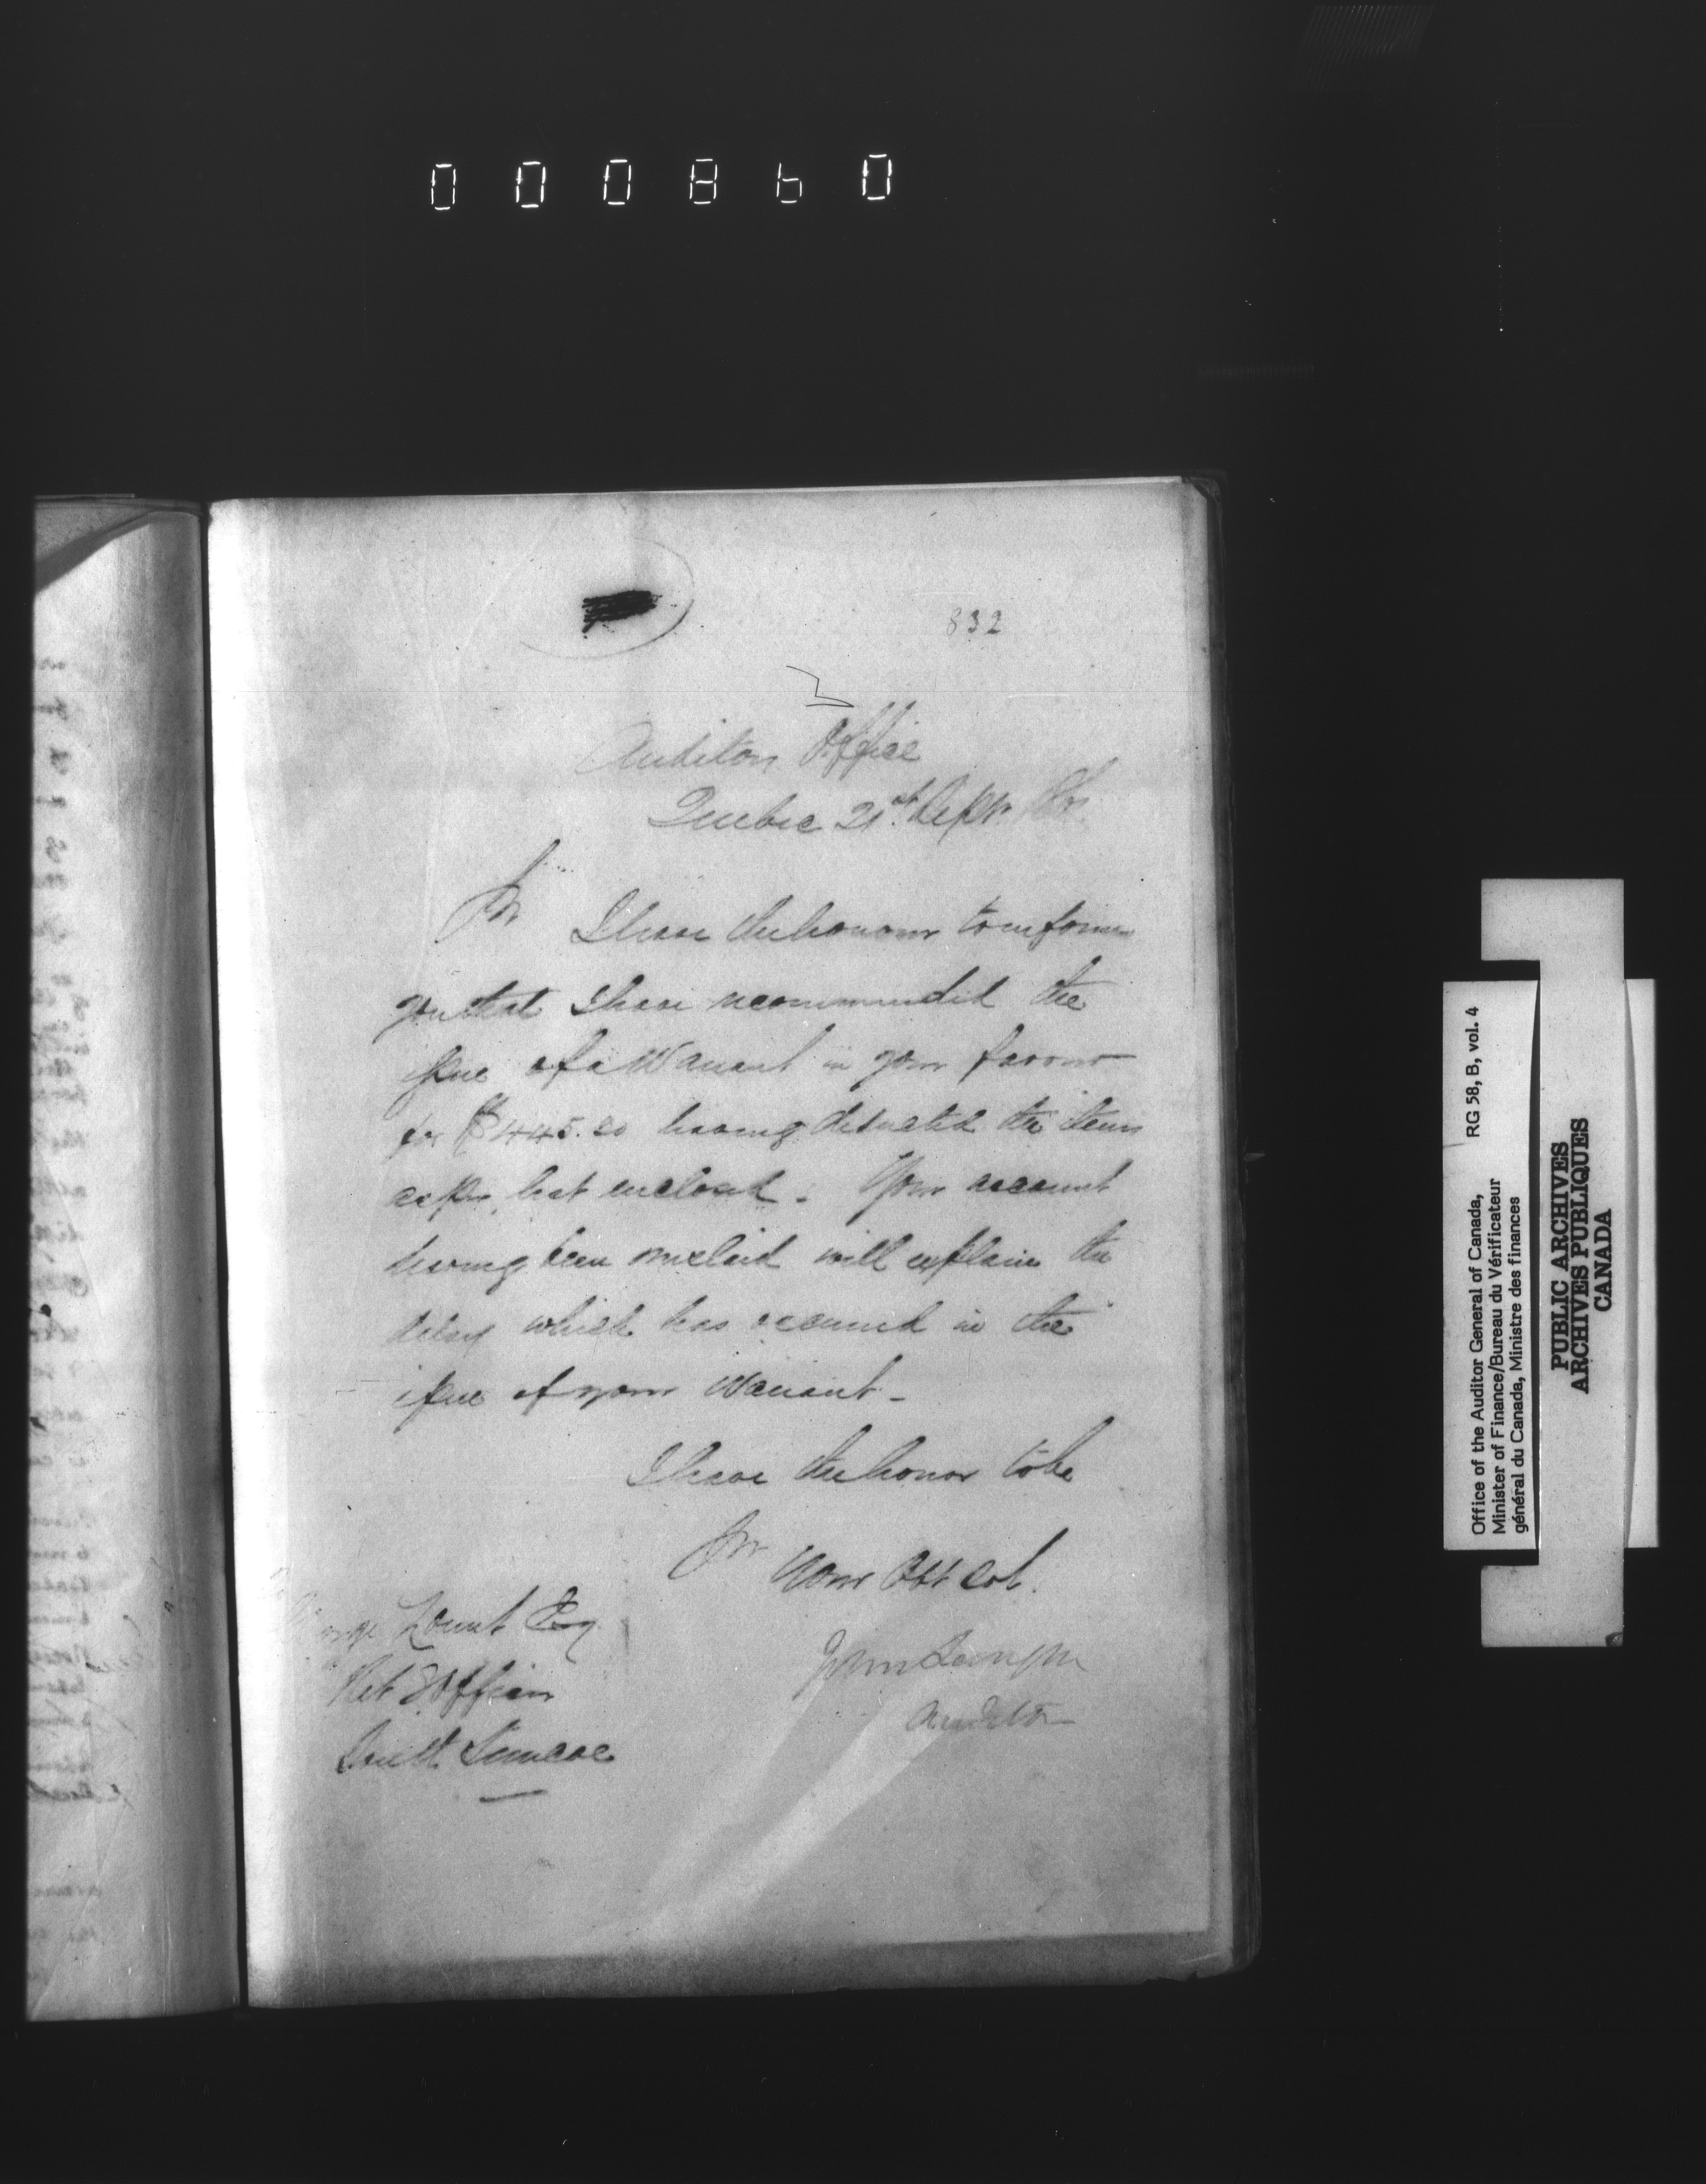 000860
832
Auditors Office
Quebec 21st Sepr.
Sir
I have the honour to inform
you that I have recommended the
issue of a Warrant in your favour
for $445.20 having deducted the items
as per list enclosed. Your account
having been mislaid will explain the
delay which has occurred in the
issue of your Warrant.
I have the honor to be
Sir
Your Obt Svt.
John Langton
Auditor
George Lount Esq
Ret Officer
South Simcoe
Office of the Auditor General of Canada, RG 58, B, vol. 4
Minister of Finance/Bureau du Vérificateur
général du Canada, Ministre des finances
PUBLIC ARCHIVES
ARCHIVES PUBLIQUES
CANADA